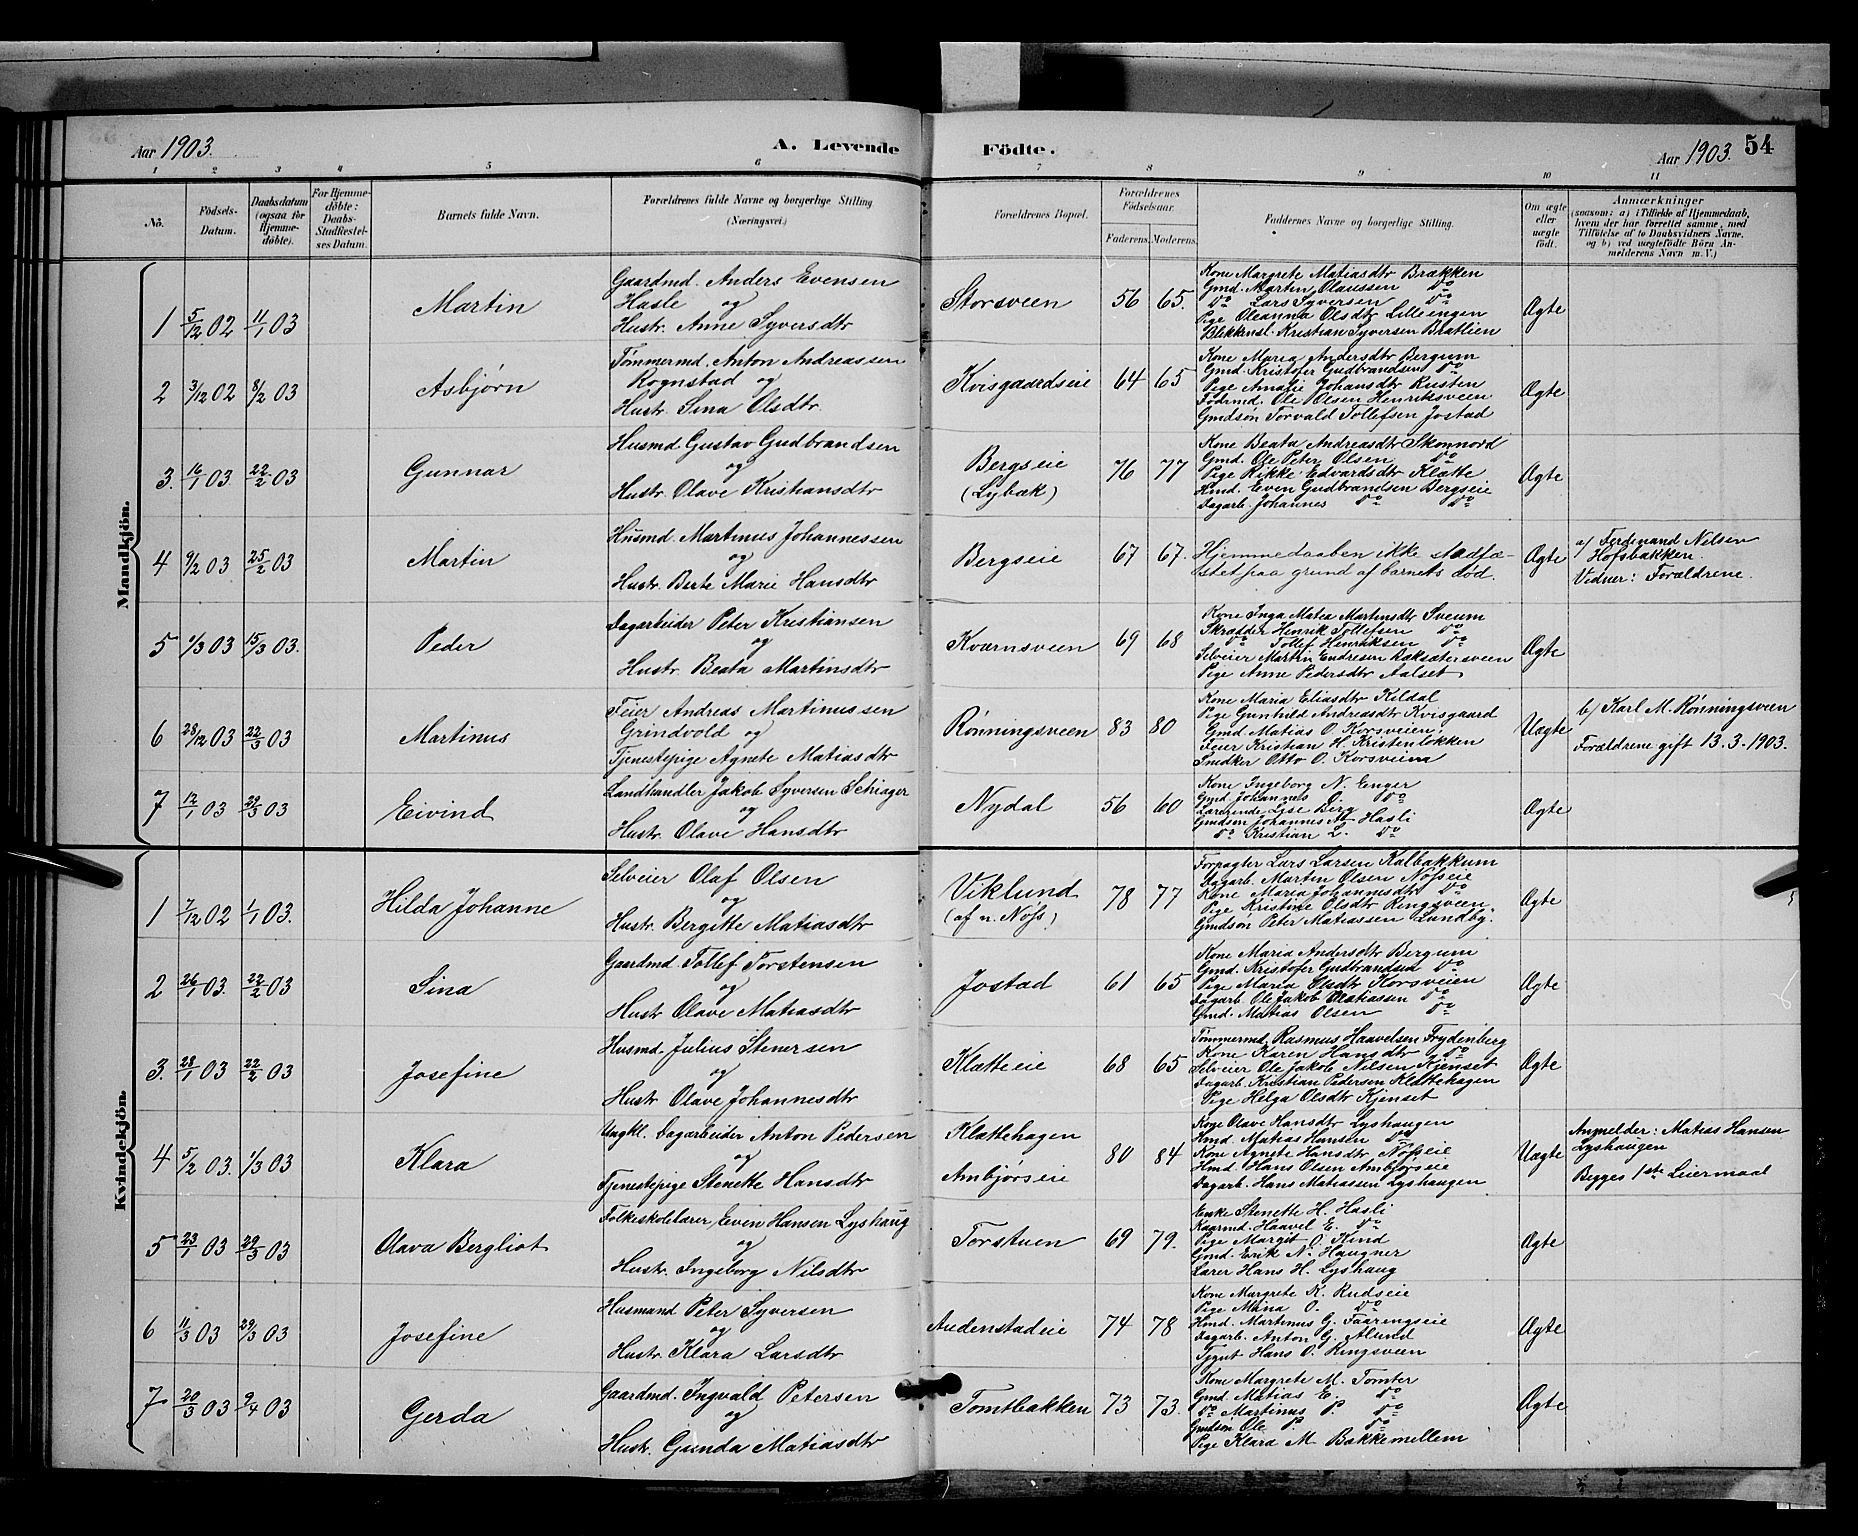 Aar 1903.
A. Levende
Födte.
Aar 1903.
54
1 2 3 4 5 6 7 8 9 10 11
No.
Födsels-Datum.
Daabsdatum (ogsaa for Hjemme-döbte).
For Hjemme-döbte: Daabs-Stadfæstel-ses Datum.
Barnets fulde Navn.
Forældrenes fulde Navne og borgerlige Stilling (Næringsvei.)
Forældrenes Bopæl.
Forældrenes Födselsaar.
Faderens. Moderens.
Faddernes Navne og borgerlige Stilling.
Om ægte eller uægte födt.
Anmærkninger
(saasom: a) i Tilfælde af Hjemmedaab, hvem der har forrettet samme, med Tilföielse af to Daabsvidners Navne. og b) ved uægtefödte Börn Anmelderens Navn m. V.)
Mandkjön.
1 5/12 02 11/1 03
Martin
Gaardmd. Anders Evensen
Hasle og
Hustr. Anne Syversdtr
Storsveen 56 65.
Kone Margrete Matiasdtr Brækken
Gmd. Martin Olaussen do
do Lars Syversen do
Pige Oleanna Olsdtr Lilleengen
Blikkensl. Kristian Syversen Bratlien
Ægte
2 3/12 02 8/2 03
Asbjørn
Tømmermd. Anton Andreassen
Rognstad og
Hustr. Sina Olsdtr.
Kvisgaardseie 64 65
Kone Maria Andersdtr Bergum
Gmd. Kristofer Gudbrandsen do
Pige Amalie Johansdtr Rusten
Födrmd. Ole Olsen Henriksveen
Gmdsøn Torvald Tollefsen Jostad
Ægte
3. 16/1 03 22/2 03
Gunnar
Husmd. Gustav Gudbrandsen
og
Hustr. Olave Kristiansdtr
Bergseie
(Lybæk) 76 77
Kone Beata Andreasdtr Skonnord
Gmd. Ole Peter Olsen do
Pige Rikke Edvardsdtr Klætte
Hmd. Even Gudbrandsen Bergseie
Dagarb. Johannes do do
Ægte
4 9/2 03 25/2 03
Martin
Husmd. Martinus Johannessen
og
Hustr. Berte Marie Hansdtr
Bergseie 67 67.
Hjemmedaaben ikke stadfæ-
stet paa grund af barnets död.
Ægte
a/ Ferdinand Nilsen
Hofsbakken.
Vidner: Forældrene.
5 1/3 03 15/3 03.
Peder
Dagarbeider Peter Kristiansen
og
Hustr. Beata Martinsdtr
Kværnsveen 69 68
Kone Inga Matea Martinsdtr Sveum
Skrædder Henrik Tollefsen do
do Tollef Henriksen do
Selveier Martin Endresen Baksætersveen
Pige Anne Pedersdtr Aalset
Ægte
6 28/12 03 22/3 03
Martinus
Feier Andreas Martinussen
Grindvold og
Tjenestepige Agnete Matiasdtr
Rønningsveen 83 80
Kone Maria Eliasdtr Kildal
Pige Gunhild Andreasdtr Kvisgaard
Gmd. Matias O. Korsveien
Feier Kristian H. Kristenløkken
Snedker Otto O. Korsveien
Uægte
b/ Karl M. Rønningsveen
Forældrene gift 13.3.1903.
7 12/1 03 29/3 03
Eivind
Landhandler Jakob Syversen Schiager
og
Hustr. Olave Hansdtr
Nydal 56 60
Kone Ingeborg N. Enger
Gmd. Johannes O. do
Lærerinde Lise Berg
Gmdsøn Johannes M. Hasli
do Kristian L. do
Ægte
Kvindekjön.
1 7/12 02 1/1 03.
Hilda Johanne
Selveier Olaf Olsen
og
Hustr. Bergitte Matiasdtr
Viklund
(af n. Nøfs) 78 77
Forpagter Lars Larsen Kalbakkum
Dagarb. Martin Olsen Nøfseie
Kone Maria Johannesdtr do
Pige Kristine Olsdtr Ringsveen
Gmdsøn Peter Matiassen Lundby.
Ægte
2 26/1 03. 22/2 03
Sina
Gaardmd. Tollef Torstensen
og
Hustr Olave Matiasdtr
Jostad 61 65
Kone Maria Andersdtr Bergum
Gmd. Kristofer Gudbrandsen do
Pige Maria Olsdtr Korsveien
Dagarb. Ole Jakob Matiassen do
Gmd. Matias Olsen do
Ægte
3. 28/1 03 22/2 03
Josefine
Husmd. Julius Stenersen
og
Hustr. Olave Johannesdtr
Klætteeie 68 65
Tømmermd. Rasmus Haavelsen Frydenberg
Kone Karen Hansdtr do
Selveier Ole Jakob Nilsen Kjenset
Dagarb. Kristian Pedersen Klættehagen
Pige Helga Olsdtr Kjenset
Ægte
4 5/2 03. 1/3 03
Klara
Ungkl. Dagarbeider Anton Pedersen
og
Tjenestepige Stenette Hansdtr
Klættehagen
Ambjørseie 80 84
Kone Olave Hansdtr Lyshaugen
Hmd. Matias Hansen do
Kone Agnete Hansdtr Nøfseie
Hmd. Hans Olsen Ambjørseie
Dagarb. Hans Matiassen Lyshaugen
Uægte
Anmelder: Matias Hansen
Lyshaugen
Begges 1ste Leiermaal
5 23/1 03 29/3 03
Olava Bergliot
Folkeskolelærer Even Hansen Lyshaug
og
Hustr. Ingeborg Nilsdtr
Torstuen 69 79.
Enke Stenette H. Hasli
Kaarmd. Haavel E. do
Pige Margit O. Kind
Gmd. Erik N. Haugner
Lærer Hans H. Lyshaug
Ægte
6 11/3 03 29/3 03
Josefine
Husmand Peter Syversen
og
Hustr. Klara Larsdtr
Audenstadeie 74 78
Kone Margrete K. Rudseie
Pige Mina O. do
Hmd. Martinus G. Faaringseie
Dagarb. Anton G. Alund
Tjgut Hans O. Ringsveen
Ægte
7 20/3 03 9/4 03
Gerda
Gaardmd. Ingvald Petersen
og
Hustr. Gunda Matiasdtr
Tomtbakken 73 73.
Kone Margrete M. Tomter
Gmd. Matias E. do
do Martinus P. do
Gmdsøn Ole P. do
Pige Klara M. Bakkemellem
Ægte